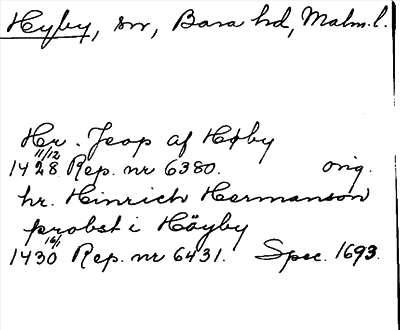 Hyby, sn, Bara hd, Malm.l.
Hr. Jeop af Høby
1428 11/12 Rep. nr 6380. orig.
hr. Hinrich Hermanson
probst i Höyby
1430 16/1 Rep. nr 6431. Spec. 1693.